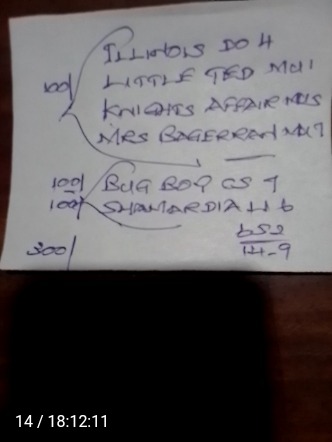 ILLINOIS DO 4
100/ LITTLE TED MU1
KNIGHTS AFFAIR MUS
MRS BAGERRAN MU7
100/ BUG BOY CS 7
100/ SHAMARDIA LL 6
652
300/ 14-9
14 / 18:12:11